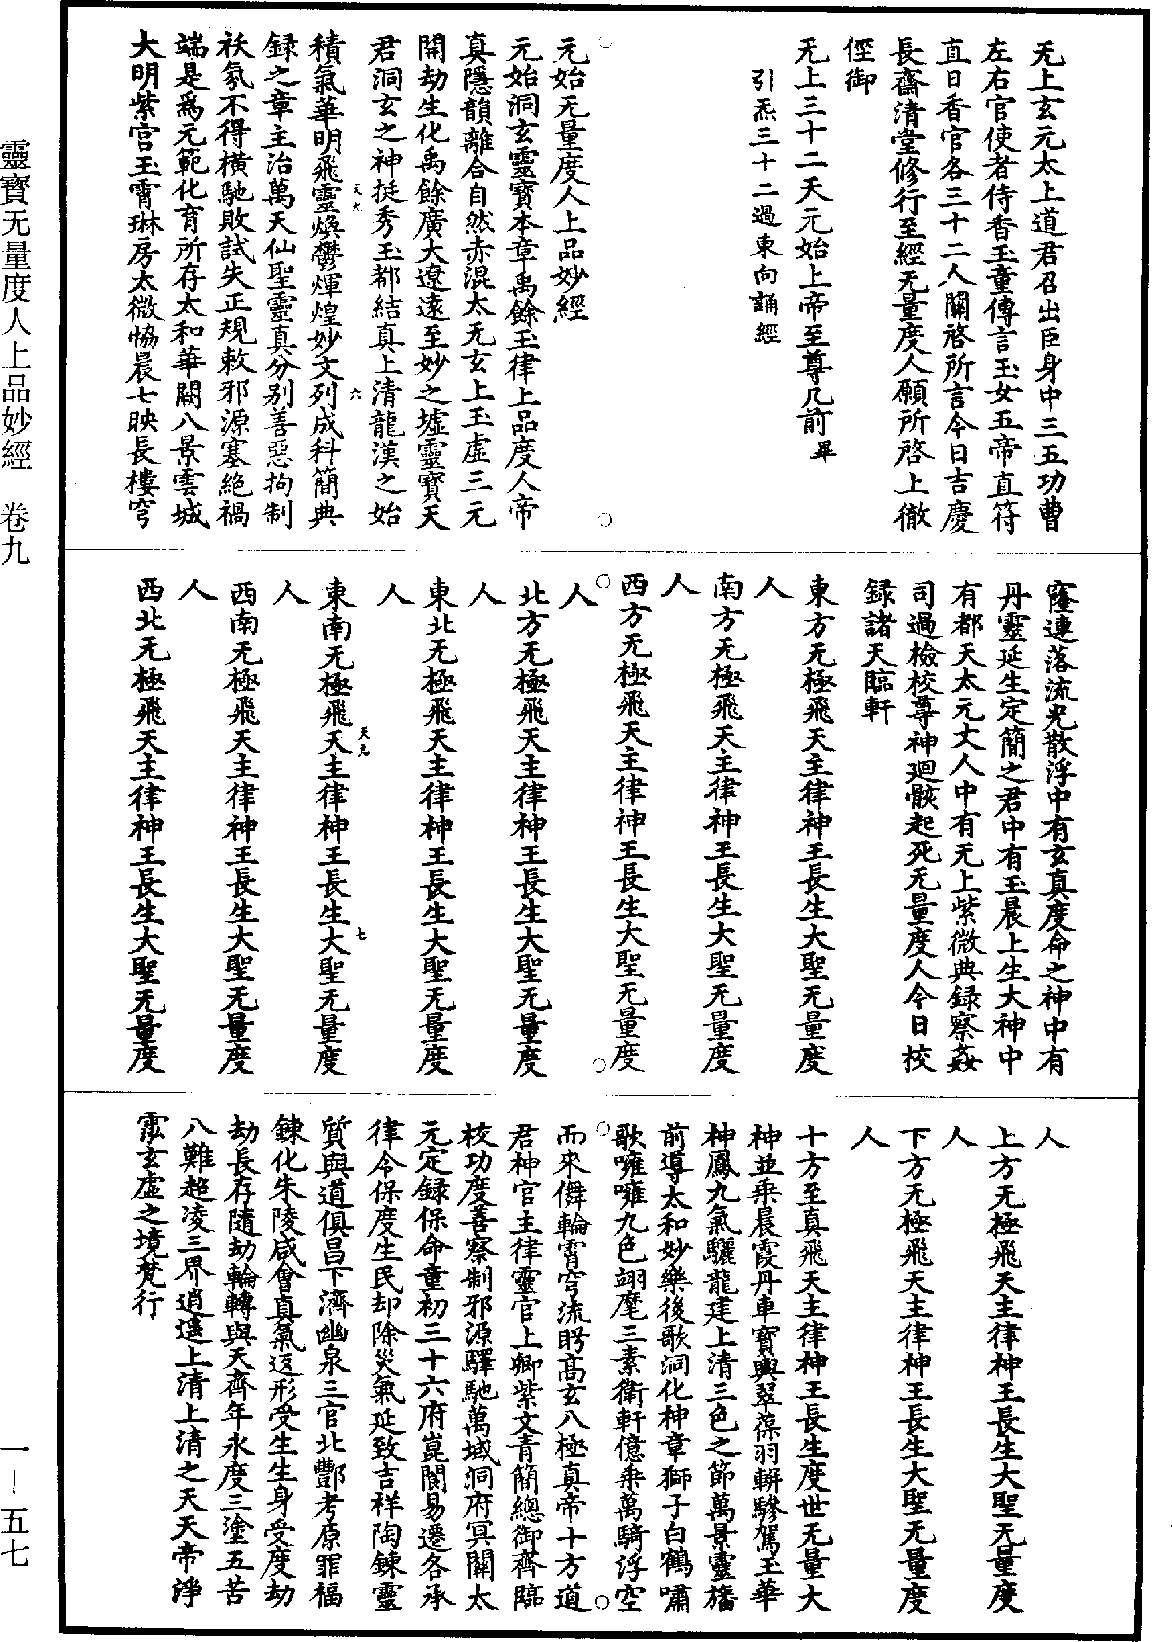 无上玄元太上道君召出臣身中三五功曹
左右官使者侍香玉童傳言玉女五帝直符
直日香官各三十二人關啓所言今日吉慶
長齋清堂修行至經无量度人願所啓上徹
俓御
无上三十二天元始上帝至尊几前畢
引炁三十二過東向誦經
元始无量度人上品妙經
元始洞玄靈寶本章禹餘玉律上品度人帝
真隱韻離合自然赤混太无玄上玉虛三元
開劫生化禹餘廣大遼遠至妙之墟靈寶天
君洞玄之神挺秀玉都結真上清龍漢之始
積氣華明飛靈煥鬱煇煌妙文列成科簡典
録之章主治萬天仙聖靈真分别善惡拘制
祅氛不得橫馳敗試失正規敕邪源塞絶禍
端是爲元範化育所存太和華闕八景雲城
大明紫宫玉霄琳房太微恊晨七映長樓穹
窿連落流光散浮中有玄真度命之神中有
丹靈延生定簡之君中有玉晨上生大神中
有都天太元丈人中有无上紫微典録察姦
司過檢校尊神廻骸起死无量度人今日校
録諸天臨軒
東方无極飛天主律神王長生大聖无量度
人
南方无極飛天主律神王長生大聖无量度
人
西方无極飛天主律神王長生大聖无量度
人
北方无極飛天主律神王長生大聖无量度
人
東北无極飛天主律神王長生大聖无量度
人
東南无極飛天主律神王長生大聖无量度
人
西南无極飛天主律神王長生大聖无量度
人
西北无極飛天主律神王長生大聖无量度
人
上方无極飛天主律神王長生大聖无量度
人
下方无極飛天主律神王長生大聖无量度
人
十方至真飛天主律神王長生度世无量大
神並乘晨霞丹車寶輿翠葆羽軿驂駕玉華
神鳳九氣驪龍建上清三色之節萬景靈旛
前導太和妙樂後歌洞化神章獅子白鶴嘯
歌嗈嗈九色翊麾三素衛軒億乘萬騎浮空
而來儛輪霄穹流眄高玄八極真帝十方道
君神官主律靈官上卿紫文青簡總御齊臨
校功度善察制邪源驛馳萬域洞府冥關太
元定録保命童初三十六府崑閬易遷各承
律令保度生民却除災氣延致吉祥陶鍊靈
質與道俱昌下濟幽泉三官北酆考原罪福
鍊化朱陵咸會真氣返形受生生身受度劫
劫長存隨劫輪轉與天齊年永度三塗五苦
八難超凌三界逍遥上清上清之天天帝淨
霐玄虛之境梵行
靈寶无量度人上品妙經 卷九
一—五七